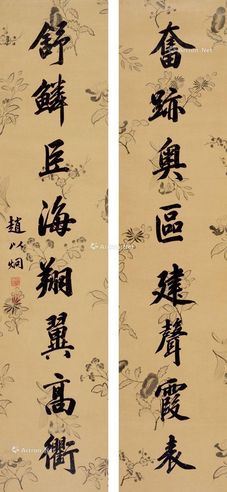 奮跡奧區建聲霞表
舒鱗巨海翔翼高衢
趙以炯